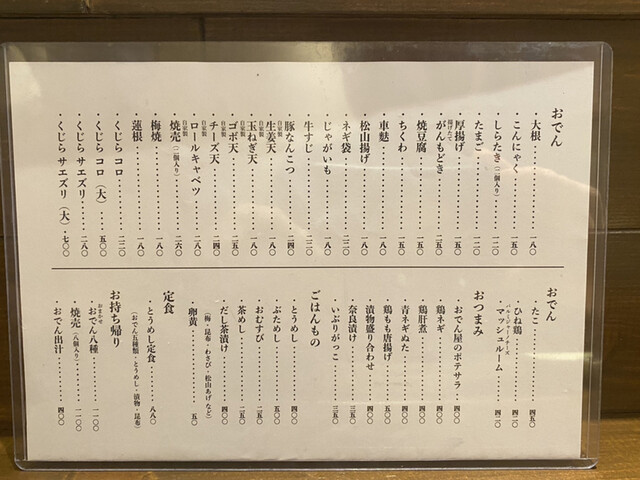 おでん
・大根 一八〇
・こんにゃく 一五〇
・しらたき（二個入り） 一二〇
・たまご 一二〇
・厚揚げ 一五〇
・がんもどき 二五〇
・焼豆腐 一八〇
・ちくわ 一五〇
・車麩 一八〇
・松山揚げ 一八〇
・ネギ袋 二二〇
・じゃがいも 一八〇
・牛すじ 二二〇
・豚なんこつ 二四〇
自家製
・生姜天 一八〇
自家製
・玉ねぎ天 一八〇
自家製
・ゴボ天 二五〇
自家製
・チーズ天 二四〇
自家製
・ロールキャベツ 二八〇
自家製
・焼売（二個入り） 二六〇
・梅焼 一八〇
・蓮根 一八〇
・くじら コロ 二二〇
・くじら コロ（大） 五〇〇
・くじら サエズリ 二八〇
・くじら サエズリ（大） 七〇〇
おでん
・たこ 四五〇
・ひね鶏 四二〇
・マッシュルーム 四二〇
おつまみ
・おでん屋のポテサラ 四〇〇
・鶏ネギ 四〇〇
・鶏肝煮 四〇〇
・青ネギぬた 四〇〇
・鶏もも唐揚げ 五〇〇
・漬物盛り合わせ 四〇〇
・奈良漬け 三五〇
・いぶりがっこ 三五〇
ごはんもの
・とうめし 四〇〇
・ぶためし 五〇〇
・おむすび 二五〇
・茶めし 二五〇
・だし茶漬け 四〇〇
（梅・昆布・わさび・松山あげ など）
・卵黄 五〇
定食
・とうめし定食 八八〇
（おでん五種類・とうめし・漬物・昆布）
お持ち帰り
おまかせ
・おでん八種 一一〇〇
・焼売（八個入り） 一一〇〇
・おでん出汁 四〇〇